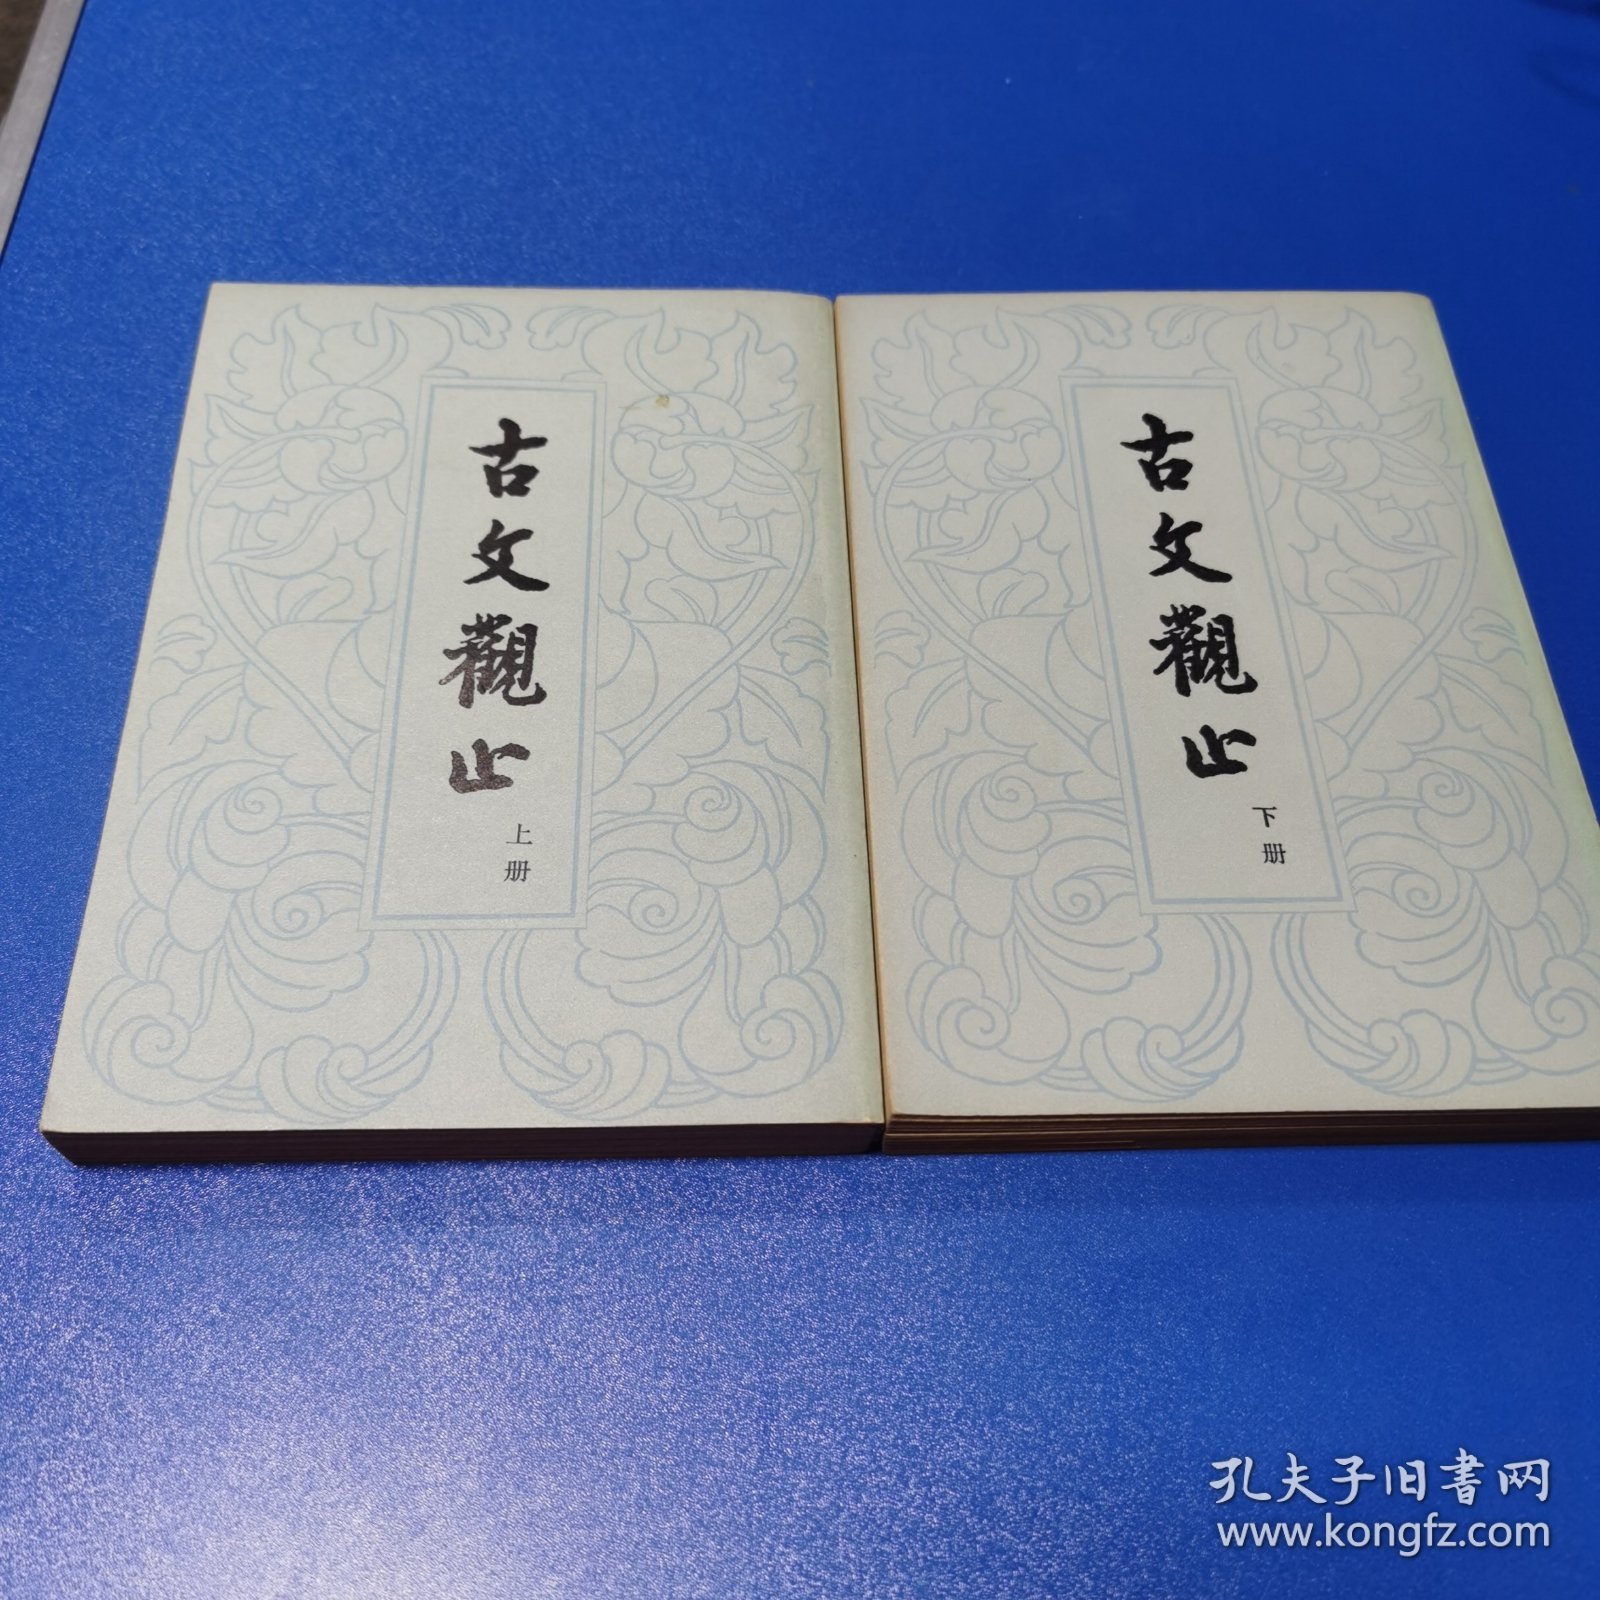 古文觀止
上册
古文觀止
下册
孔夫子旧書网
www.kongfz.com